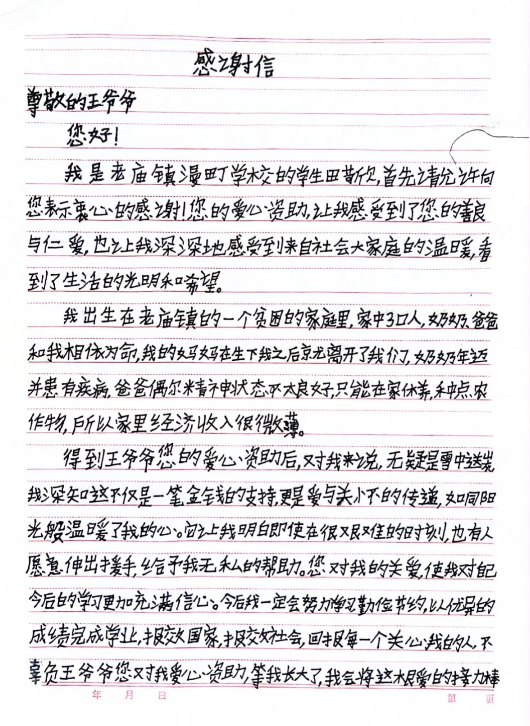 感谢信
尊敬的王爷爷
您好!
我是老庙镇漫町学校的学生田梦欣,首先请允许向
您表示衷心的感谢!您的爱心资助,让我感受到了您的善良
与仁爱,也让我深深地感受到来自社会大家庭的温暖,看
到了生活的光明和希望。
我出生在老庙镇的一个贫困的家庭里,家中3口人,奶奶、爸爸
和我相依为命,我的妈妈在生下我之后就离开了我们,奶奶年迈
并患有疾病,爸爸偶尔精神状态不太良好,只能在家休养,种点农
作物,所以家里经济收入很微薄。
得到王爷爷您的爱心资助后,对我来说,无疑是雪中送炭
我深知这不仅是一笔金钱的支持,更是爱与关怀的传递,如同阳
光般温暖了我的心。它让我明白即使在很艰难的时刻,也有人
愿意伸出援手,给予我无私的帮助。您对我的关爱,使我对自己
今后的学习更加充满信心。今后我一定会努力学习勤俭节约,以优异的
成绩完成学业,报效国家,报效社会,回报每一个关心我的人,不
辜负王爷爷您对我爱心资助,等我长大了,我会将这根爱的接力棒
年 月 日 第 页